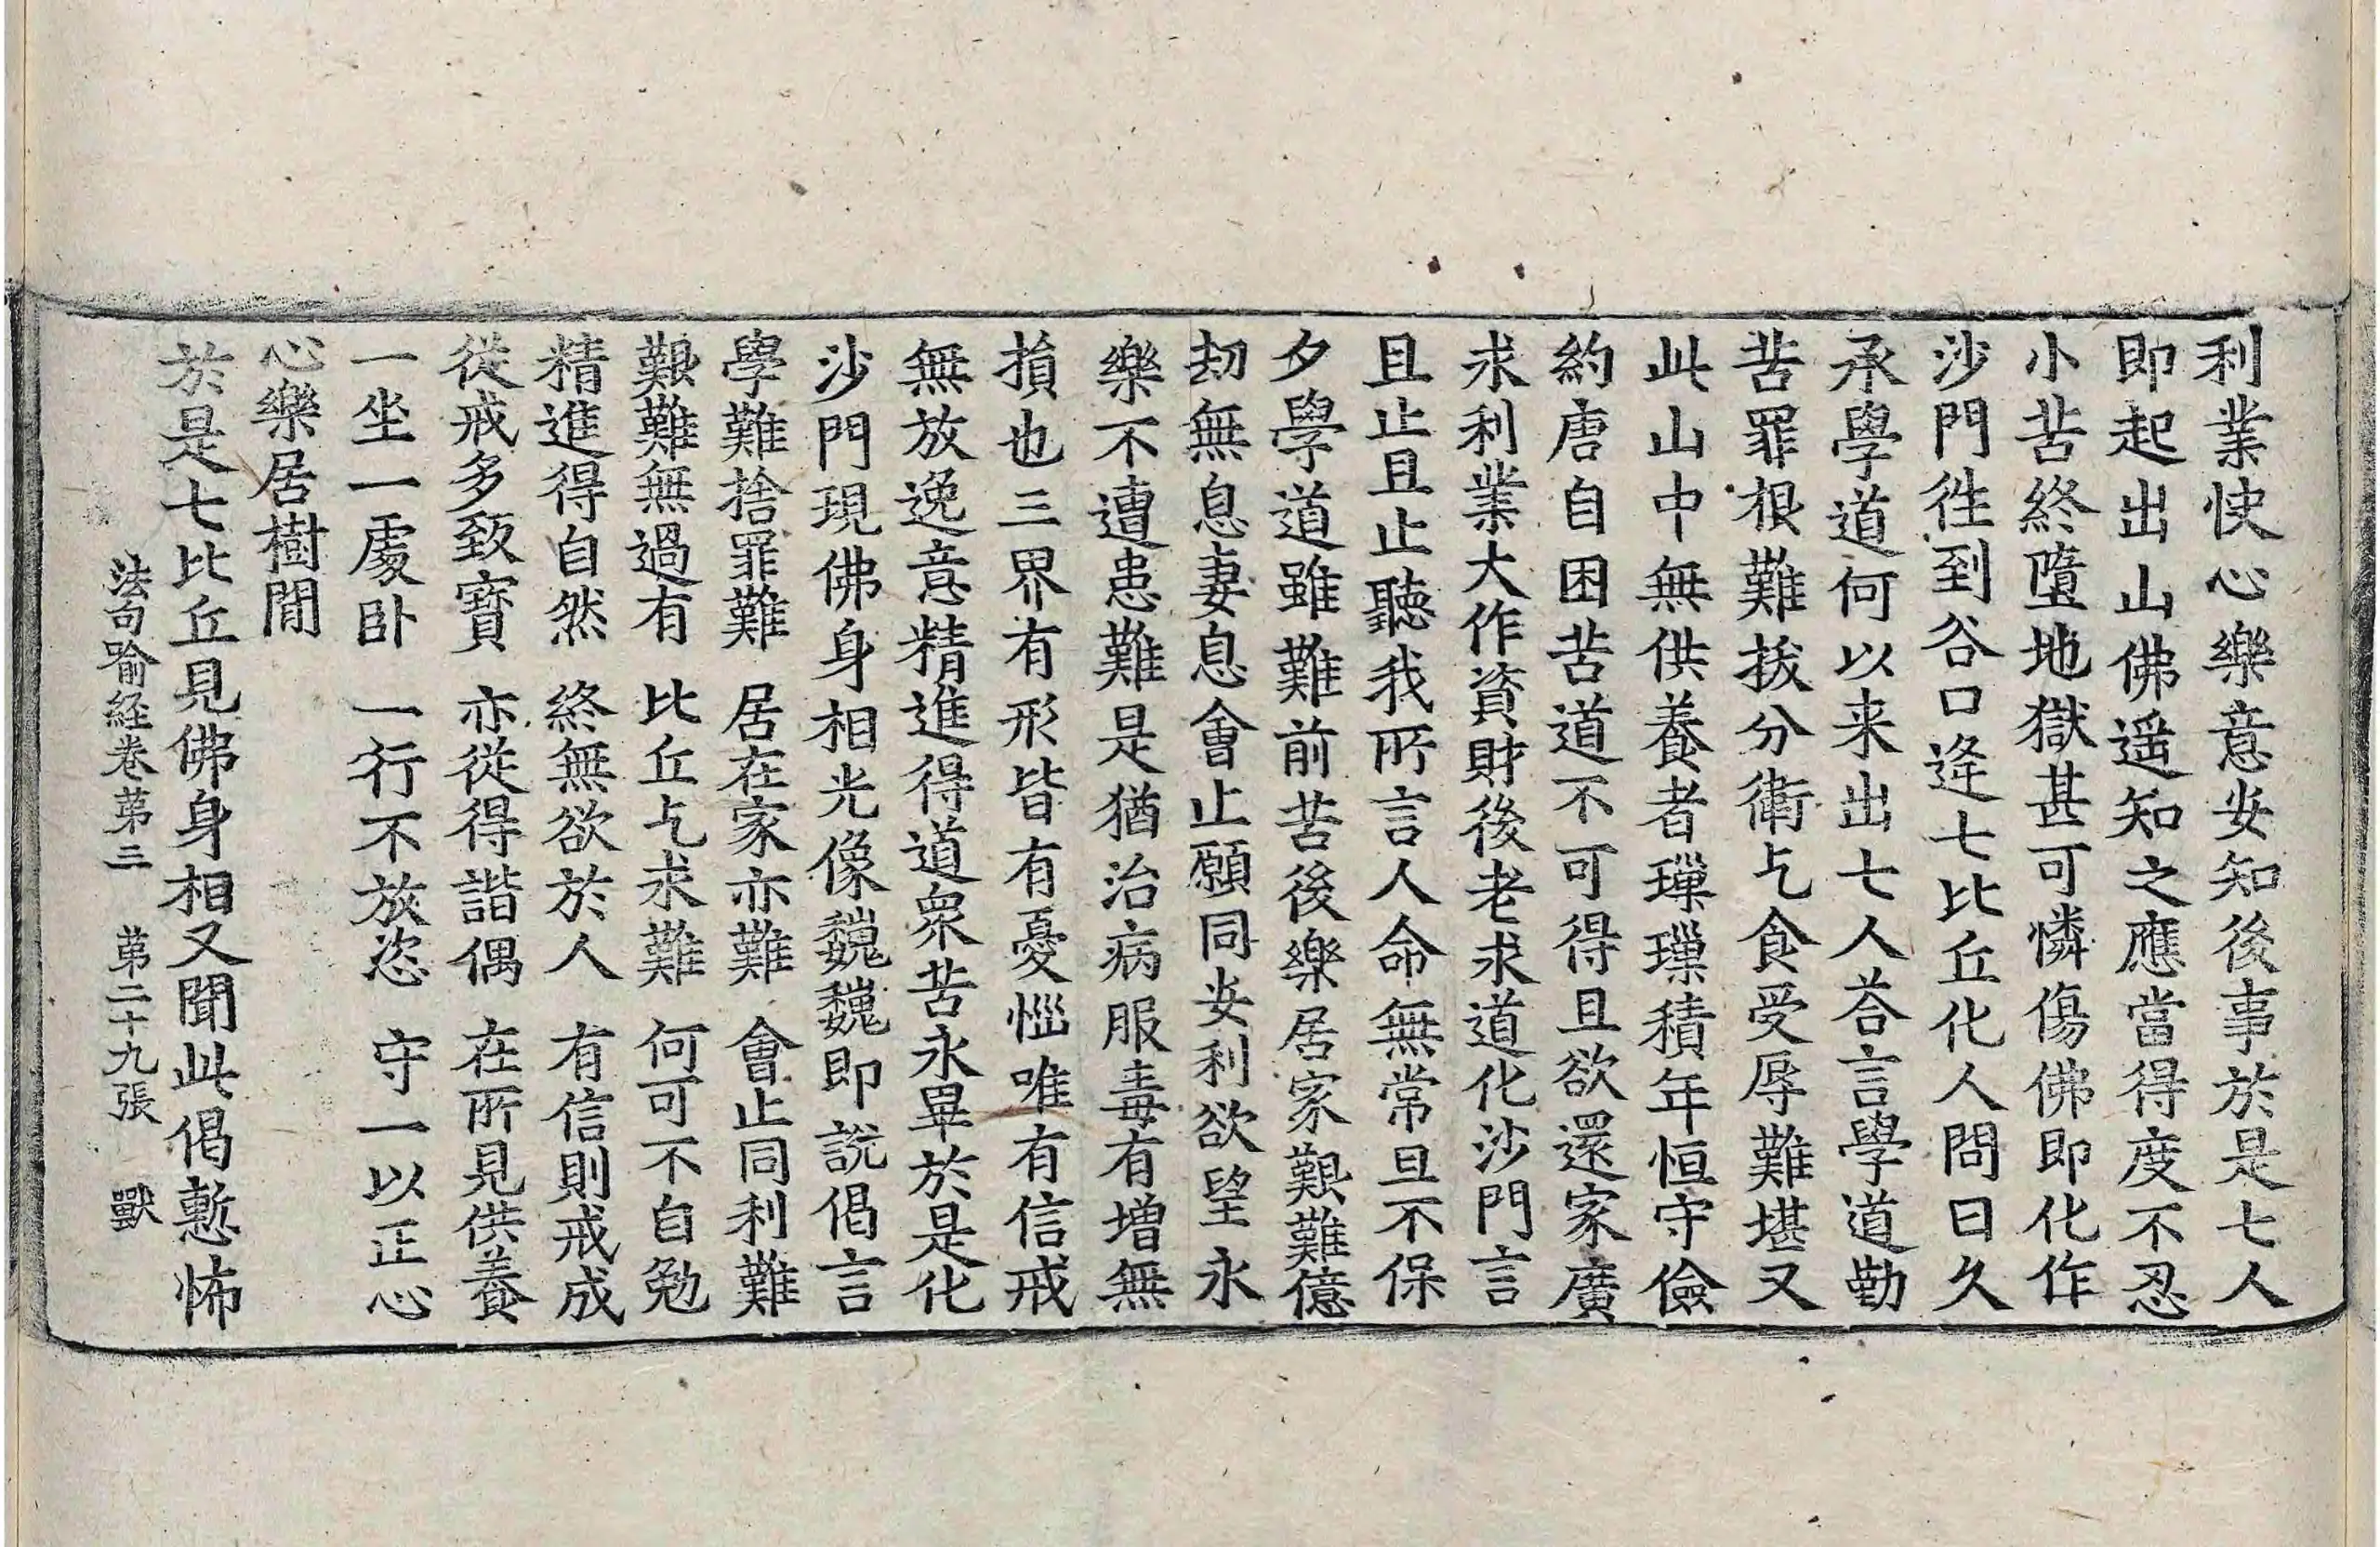 利業快心樂意安知後事於是七人
即起出山佛遥知之應當得度不忍
小苦終墮地獄甚可憐傷佛即化作
沙門徃到谷口逢七比丘化人問曰久
承學道何以来出七人荅言學道勤
苦罪根難拔分衛乞食受辱難堪又
此山中無供養者璅璅積年恒守儉
約唐自困苦道不可得且欲還家廣
求利業大作資財後老求道化沙門言
且止且止聽我所言人命無常旦不保
夕學道雖難前苦後樂居家艱難億
劫無息妻息會止願同安利欲望永
樂不遭患難是猶治病服毒有增無
損也三界有形皆有憂惱唯有信戒
無放逸意精進得道衆苦永畢於是化
沙門現佛身相光像巍巍即說偈言
學難捨罪難　居在家亦難　會止同利難
艱難無過有　比丘乞求難　何可不自勉
精進得自然　終無欲於人　有信則戒成
從戒多致寶　亦從得諧偶　在所見供養
一坐一處卧　一行不放恣　守一以正心
心樂居樹間
於是七比丘見佛身相又聞此偈慙怖
法句喻経卷第三　第二十九張　獸